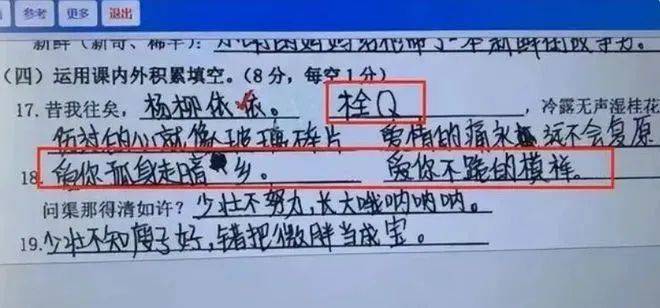 参考 更多 退出
新鲜（新奇、稀罕）：
（四）运用课内外积累填空。（8 分，每空 1 分）
17. 昔我往矣，杨柳依依。 栓Q ，冷露无声湿桂花
伤过的心就像玻璃碎片 爱情的痛永远不会复原
18. 爱你孤身走暗乡。 爱你不跪的模样。
问渠那得清如许？少壮不努力，长大哦呐呐呐。
19. 少壮不知瘦子好，错把微胖当成宝。